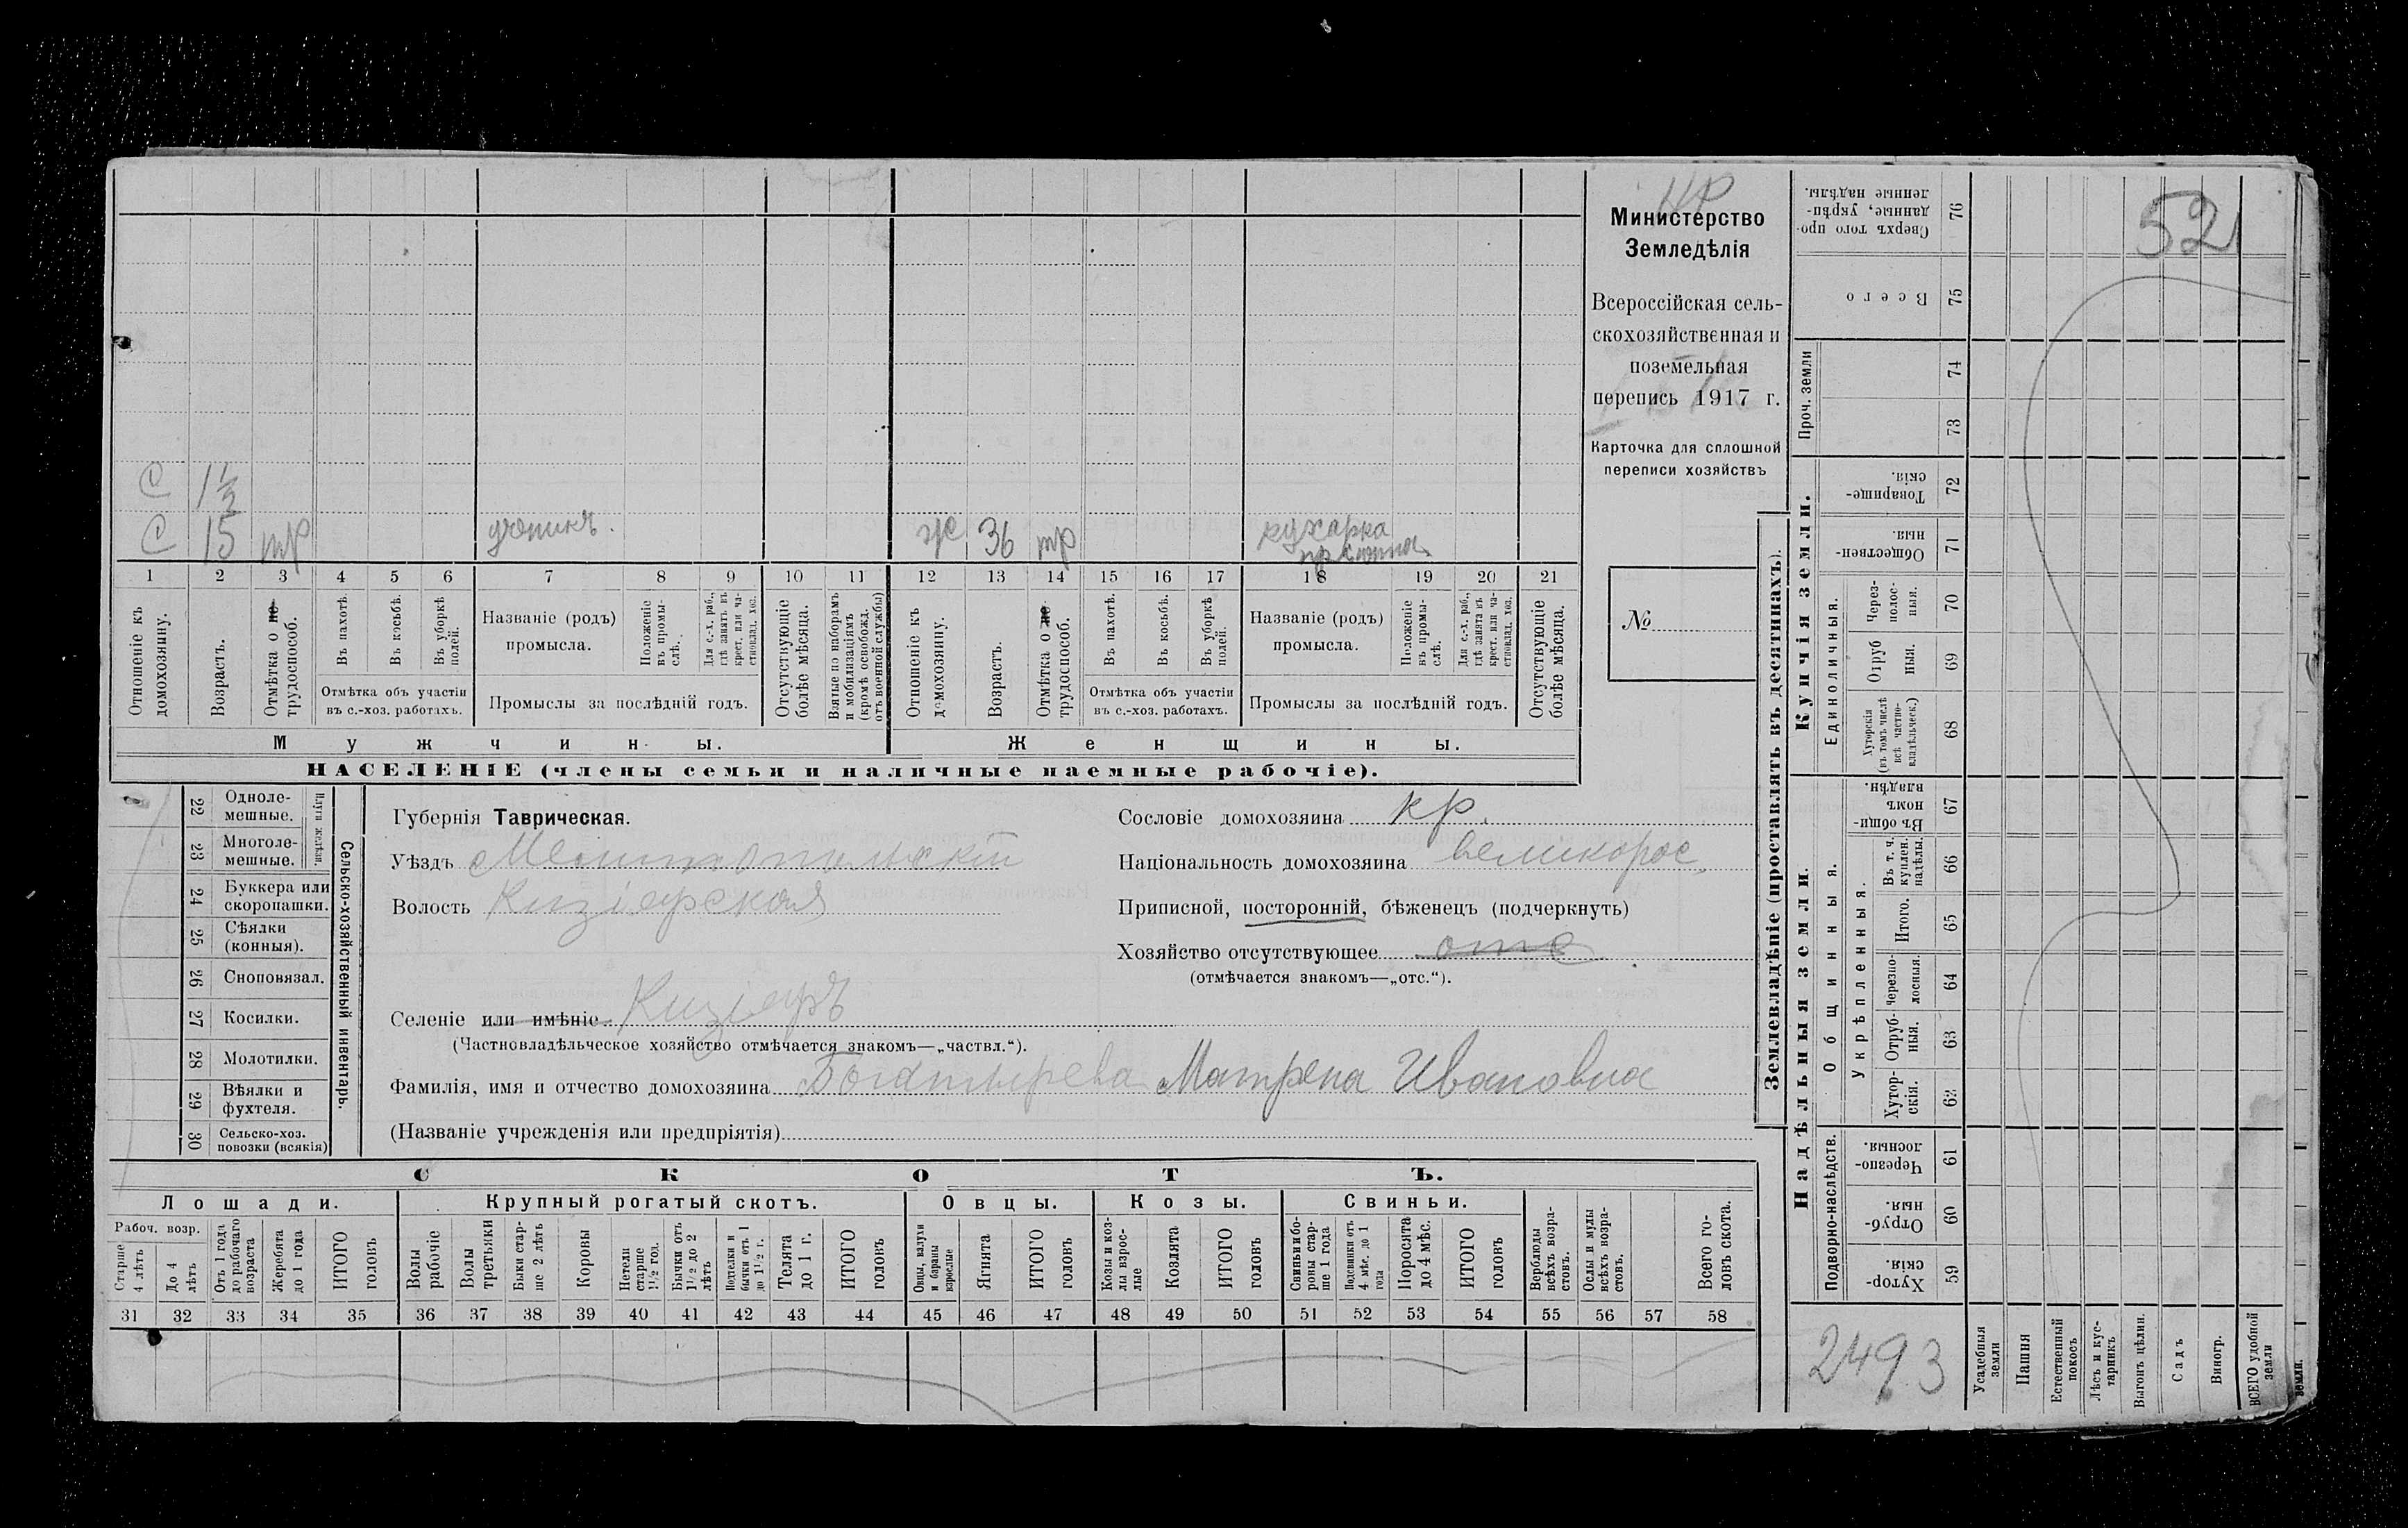 НР
52
Министерство
Земледѣлія
Всероссійская сель-
скохозяйственная и
поземельная
перепись 1917 г.
Карточка для сплошной
переписи хозяйствъ
№
С 1½
С 15 тр ученикъ. ж 36 тр кухарка
1 2 3 4 5 6 7 8 9 10 11 12 13 14 15 16 17 18 19 20 21
Отношеніе къ домохозяину.
Возрастъ.
Отмѣтка о не- трудоспособ.
Въ пахотѣ.
Въ косьбѣ.
Въ уборкѣ полей.
Отмѣтка объ участіи
въ с.-хоз. работахъ.
Названіе (родъ)
промысла.
Положеніе въ промы- слѣ.
Для с.-х. раб., гдѣ занятъ въ крест. или ча- стновлад. хоз.
Промыслы за послѣдній годъ.
Отсутствующіе болѣе мѣсяца.
Взятые по наборамъ и мобилизаціямъ (кромѣ освобожд. отъ военной службы)
Отношеніе къ домохозяину.
Возрастъ.
Отмѣтка о не трудоспособ.
Въ пахотѣ.
Въ косьбѣ.
Въ уборкѣ полей.
Отмѣтка объ участіи
въ с.-хоз. работахъ.
Названіе (родъ)
промысла.
Положеніе въ промы- слѣ.
Для с.-х. раб., гдѣ занята въ крест. или ча- стновлад. хоз.
Промыслы за послѣдній годъ.
Отсутствующіе болѣе мѣсяца.
Мужчины.
Женщины.
НАСЕЛЕНІЕ (члены семьи и наличные наемные рабочіе).
22 Одноле- мешные.
23 Многоле- мешные.
24 Буккера или скоропашки.
25 Сѣялки (конныя).
26 Сноповязал.
27 Косилки.
28 Молотилки.
29 Вѣялки и фухтеля.
30 Сельско-хоз. повозки (всякія)
Сельско-хозяйственный инвентарь.
Губернія Таврическая.
Уѣздъ Мелитопольскій
Волость Кизіярская
Сословіе домохозяина кр.
Національность домохозяина великорос.
Приписной, посторонній, бѣженецъ (подчеркнуть)
Хозяйство отсутствующее отс
(отмѣчается знакомъ—„отс.“).
Селеніе или имѣніе Кизіяръ
(Частновладѣльческое хозяйство отмѣчается знакомъ—„частвл.“).
Фамилія, имя и отчество домохозяина Богатырева Матрена Ивановна
(Названіе учрежденія или предпріятія)
СКОТЪ.
Лошади. Крупный рогатый скотъ. Овцы. Козы. Свиньи.
Рабоч. возр.
Старше 4 лѣтъ
До 4 лѣтъ
Отъ 1 года до рабочаго возраста
Жеребята до 1 года
ИТОГО головъ
Волы рабочіе
Волы третьяки
Быки стар- ше 2 лѣтъ
Коровы
Нетели старше 1½ год.
Бычки отъ 1½ до 2 лѣтъ
Нетелки и бычки отъ 1 до 1½ г.
Телята до 1 г.
ИТОГО головъ
Овцы, валухи и бараны взрослые
Ягнята
ИТОГО головъ
Козы и коз- лы взрос- лые
Козлята
ИТОГО головъ
Свиньи и бо- ровы стар- ше 1 года
Подсвинки отъ 4 мѣс. до 1 года
Поросята до 4 мѣс.
ИТОГО головъ
Верблюды всѣхъ возра- стовъ.
Ослы и мулы всѣхъ возра- стовъ.
Всего го- ловъ скота.
31 32 33 34 35 36 37 38 39 40 41 42 43 44 45 46 47 48 49 50 51 52 53 54 55 56 57 58
Землевладѣніе (проставлять въ десятинахъ).
Сверхъ того про- данные, укрѣп- ленные надѣлы. 76
Всего 75
Проч. земли
74
73
Купчія земли.
Товарище- скія. 72
Обществен- ныя. 71
Единоличныя.
Через- полос- ныя. 70
Отруб ныя. 69
Хуторскія (въ томъ числѣ всѣ частно- владѣльческ.) 68
Надѣльныя земли.
Общинныя.
Въ общи- номъ владѣн. 67
Укрѣпленныя.
Въ т. ч. куплен. надѣлы. 66
Итого. 65
Черезпо- лосныя. 64
Отруб- ныя. 63
Хутор- скія. 62
Подворно-наслѣдств.
Черезпо- лосныя. 61
Отруб- ныя. 60
Хутор- скія. 59
2493
Усадебныя земли
Пашня
Естественный покосъ
Лѣсъ и кус- тарникъ
Выгонъ цѣлин.
Садъ
Виногр.
ВСЕГО удобной земли
земли.